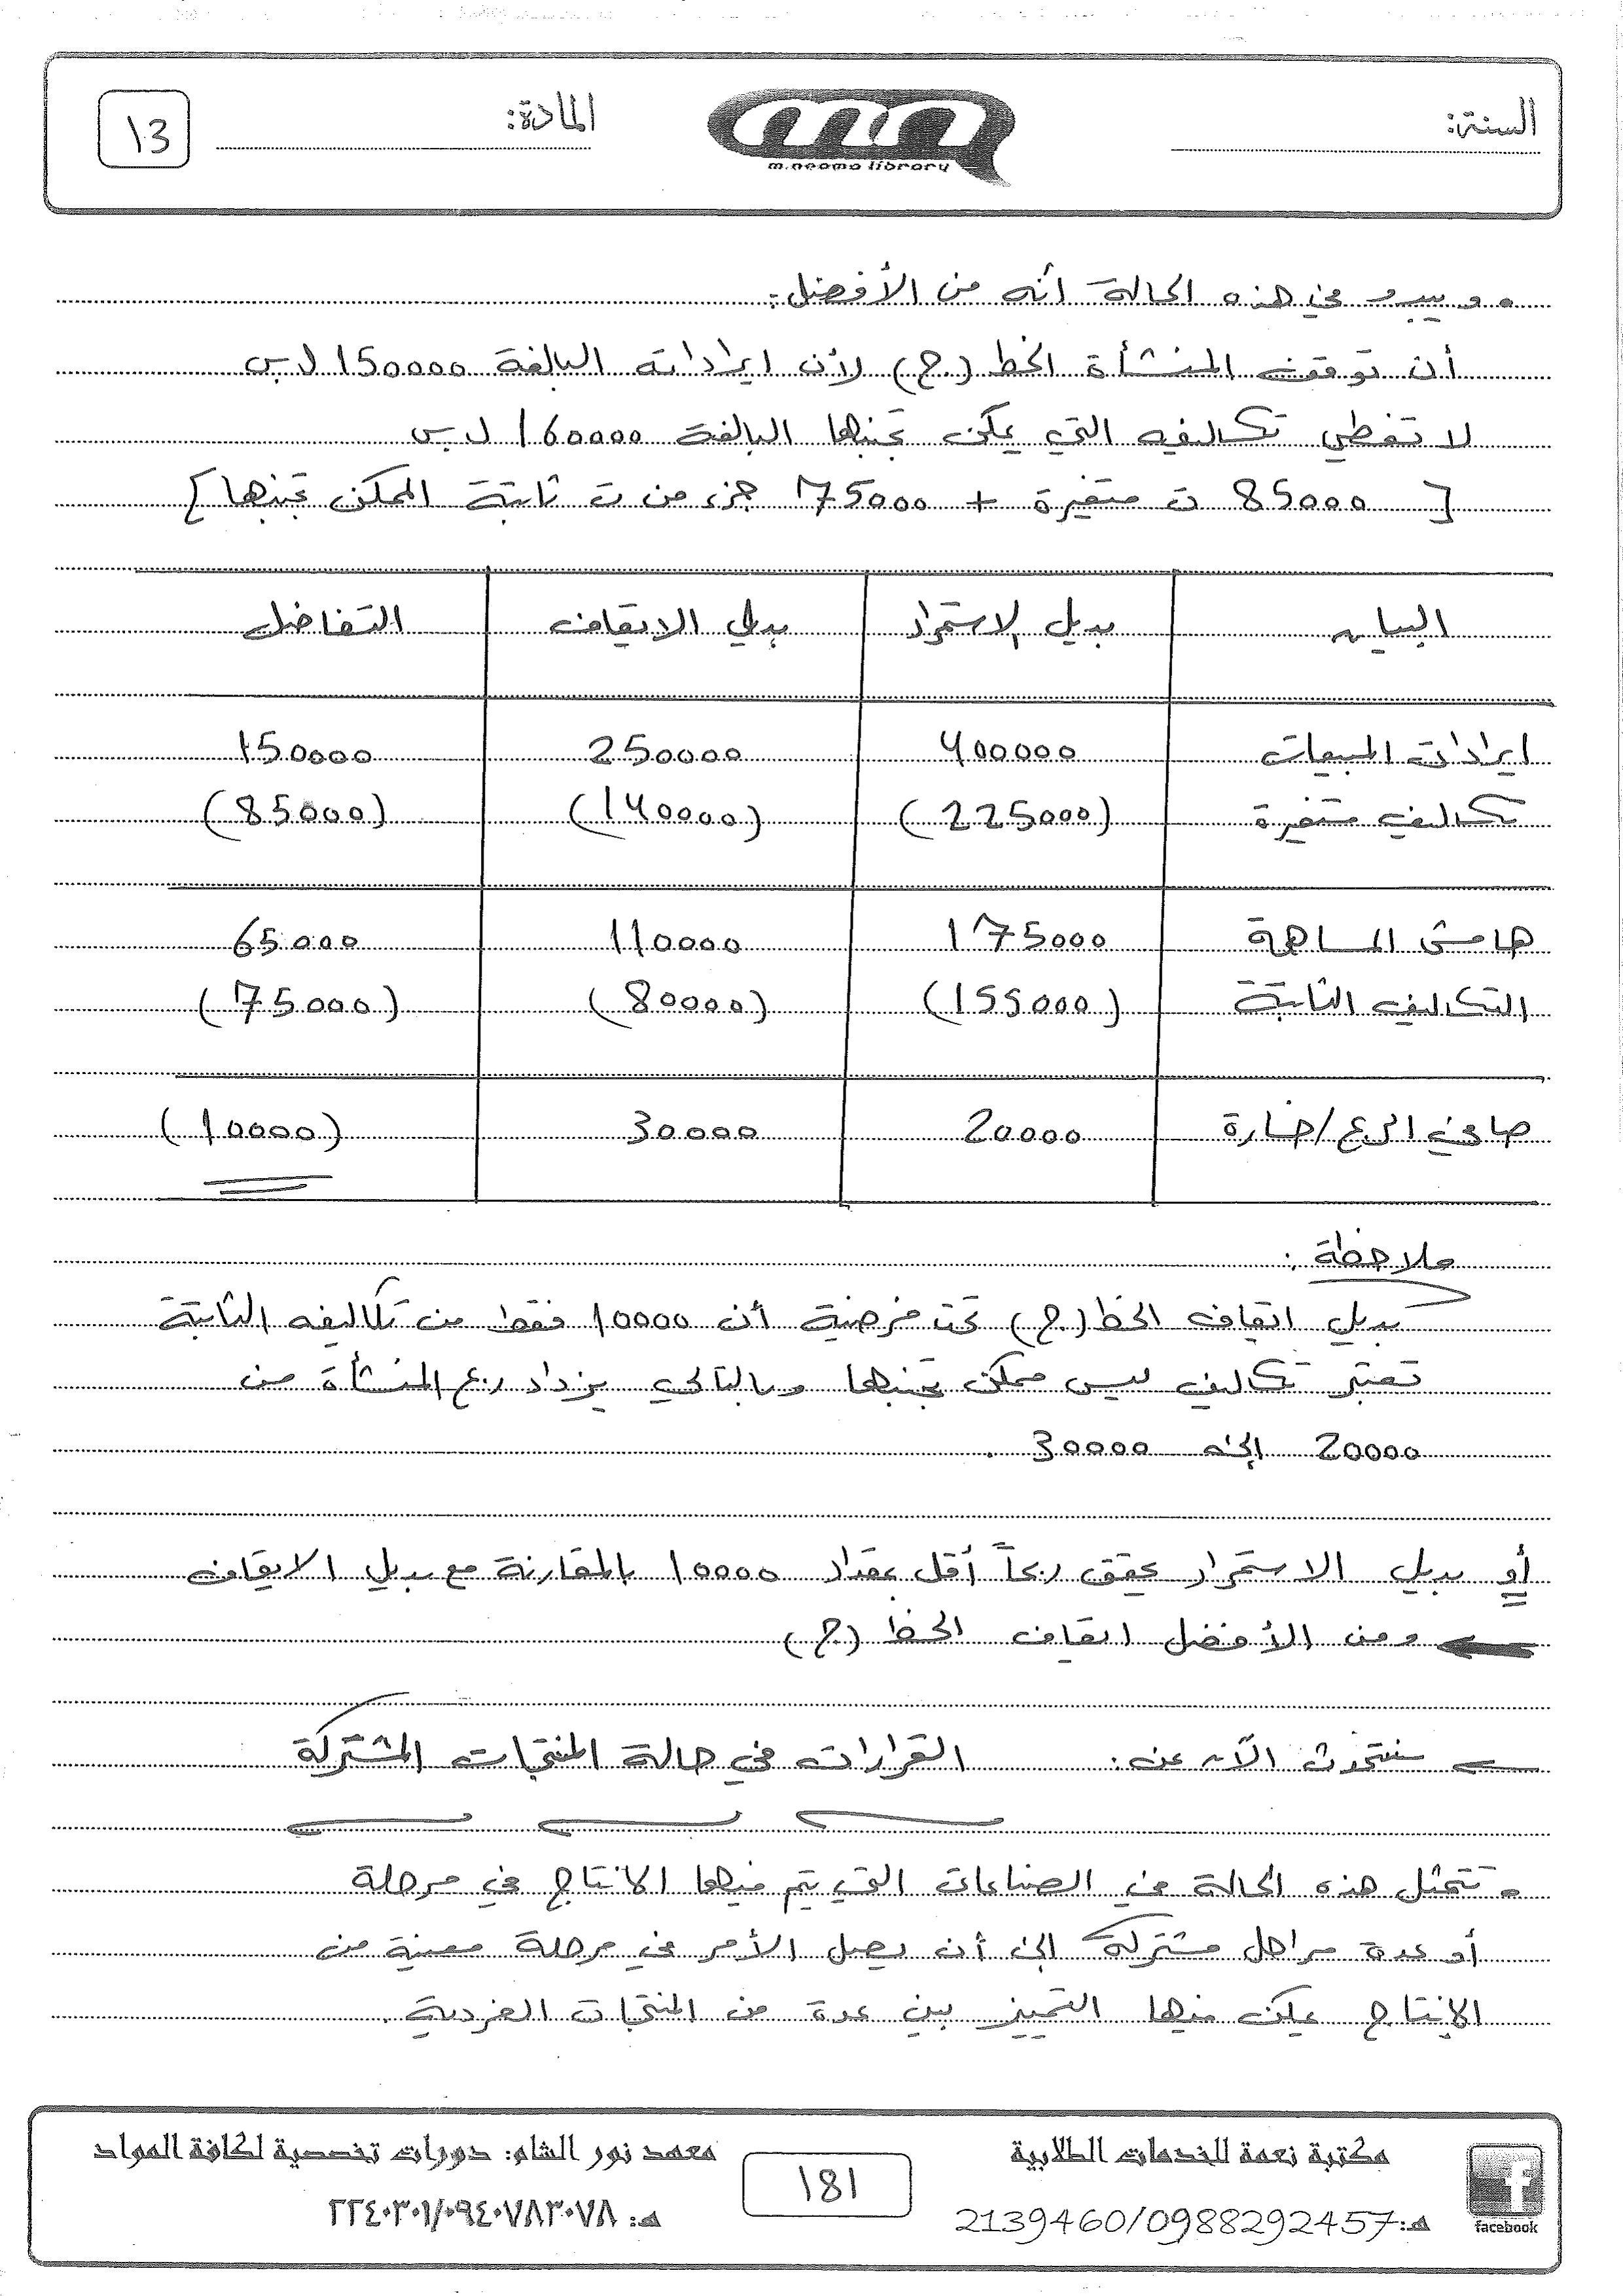 السنة:
m.neama library
المادة:
13
• ويبدو في هذه الحالة أنه من الأفضل:
أن توقف المنشأة الخط (ج) لأن ايراداته البالغة 150000 ل.س
لا تغطي تكاليفه التي يمكن تجنبها البالغة 160000 ل.س
[ 85000 ت متغيرة + 75000 جزء من ت ثابتة الممكن تجنبها ]
البيان بديل الاستمرار بديل الايقاف التفاضل
ايرادات المبيعات 400000 250000 150000
تكاليف متغيرة (225000) (140000) (85000)
هامش المساهمة 175000 110000 65000
التكاليف الثابتة (155000) (80000) (75000)
صافي الربح/خسارة 20000 30000 (10000)
ملاحظة:
بديل ايقاف الخط (ج) تحت فرضية أن 10000 فقط من تكاليفه الثابتة
تعتبر تكاليف ليس ممكن تجنبها وبالتالي يزداد ربح المنشأة من
20000 إلى 30000.
أو بديل الاستمرار يحقق ربحاً أقل بمقدار 10000 بالمقارنة مع بديل الايقاف
ومن الأفضل ايقاف الخط (ج)
سنتحدث الآن عن: القرارات في حالة المنتجات المشتركة
• تتمثل هذه الحالة في الصناعات التي يتم فيها الانتاج في مرحلة
أو عدة مراحل مشتركة إلى أن يصل الأمر في مرحلة معينة من
الانتاج يمكن فيها التمييز بين عدة من المنتجات الفردية.
facebook
مكتبة نعمة للخدمات الطلابية
هـ: 2139460/0988292457
181
معهد نور الشام: دورات تخصصية لكافة المواد
هـ: ٢٢٤٠٣٠١/٠٩٤٠٧٨٣٠٧٨